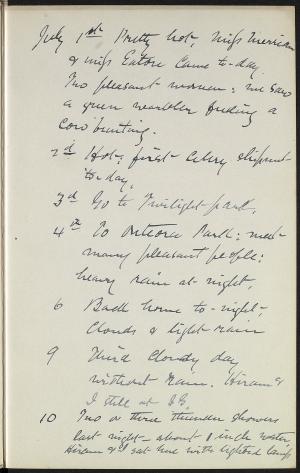 July 1st Pretty hot, Miss Merriam
& Miss Eaton came to-day.
Two pleasant women; we saw
a green warbler feeding a
cow bunting.
2d Hot; first celery shipment
to-day.
3d Go to Twilight park.
4th To Onteora Park: meet
many pleasant people:
heavy rain at night.
6 Back home to-night;
Clouds & light rain
9 Third cloudy day
without rain. Hiram &
I still at S.S.
10 Two or three thunder showers
last night - about 1 inch water,
Hiram & I sat here with lighted lamp